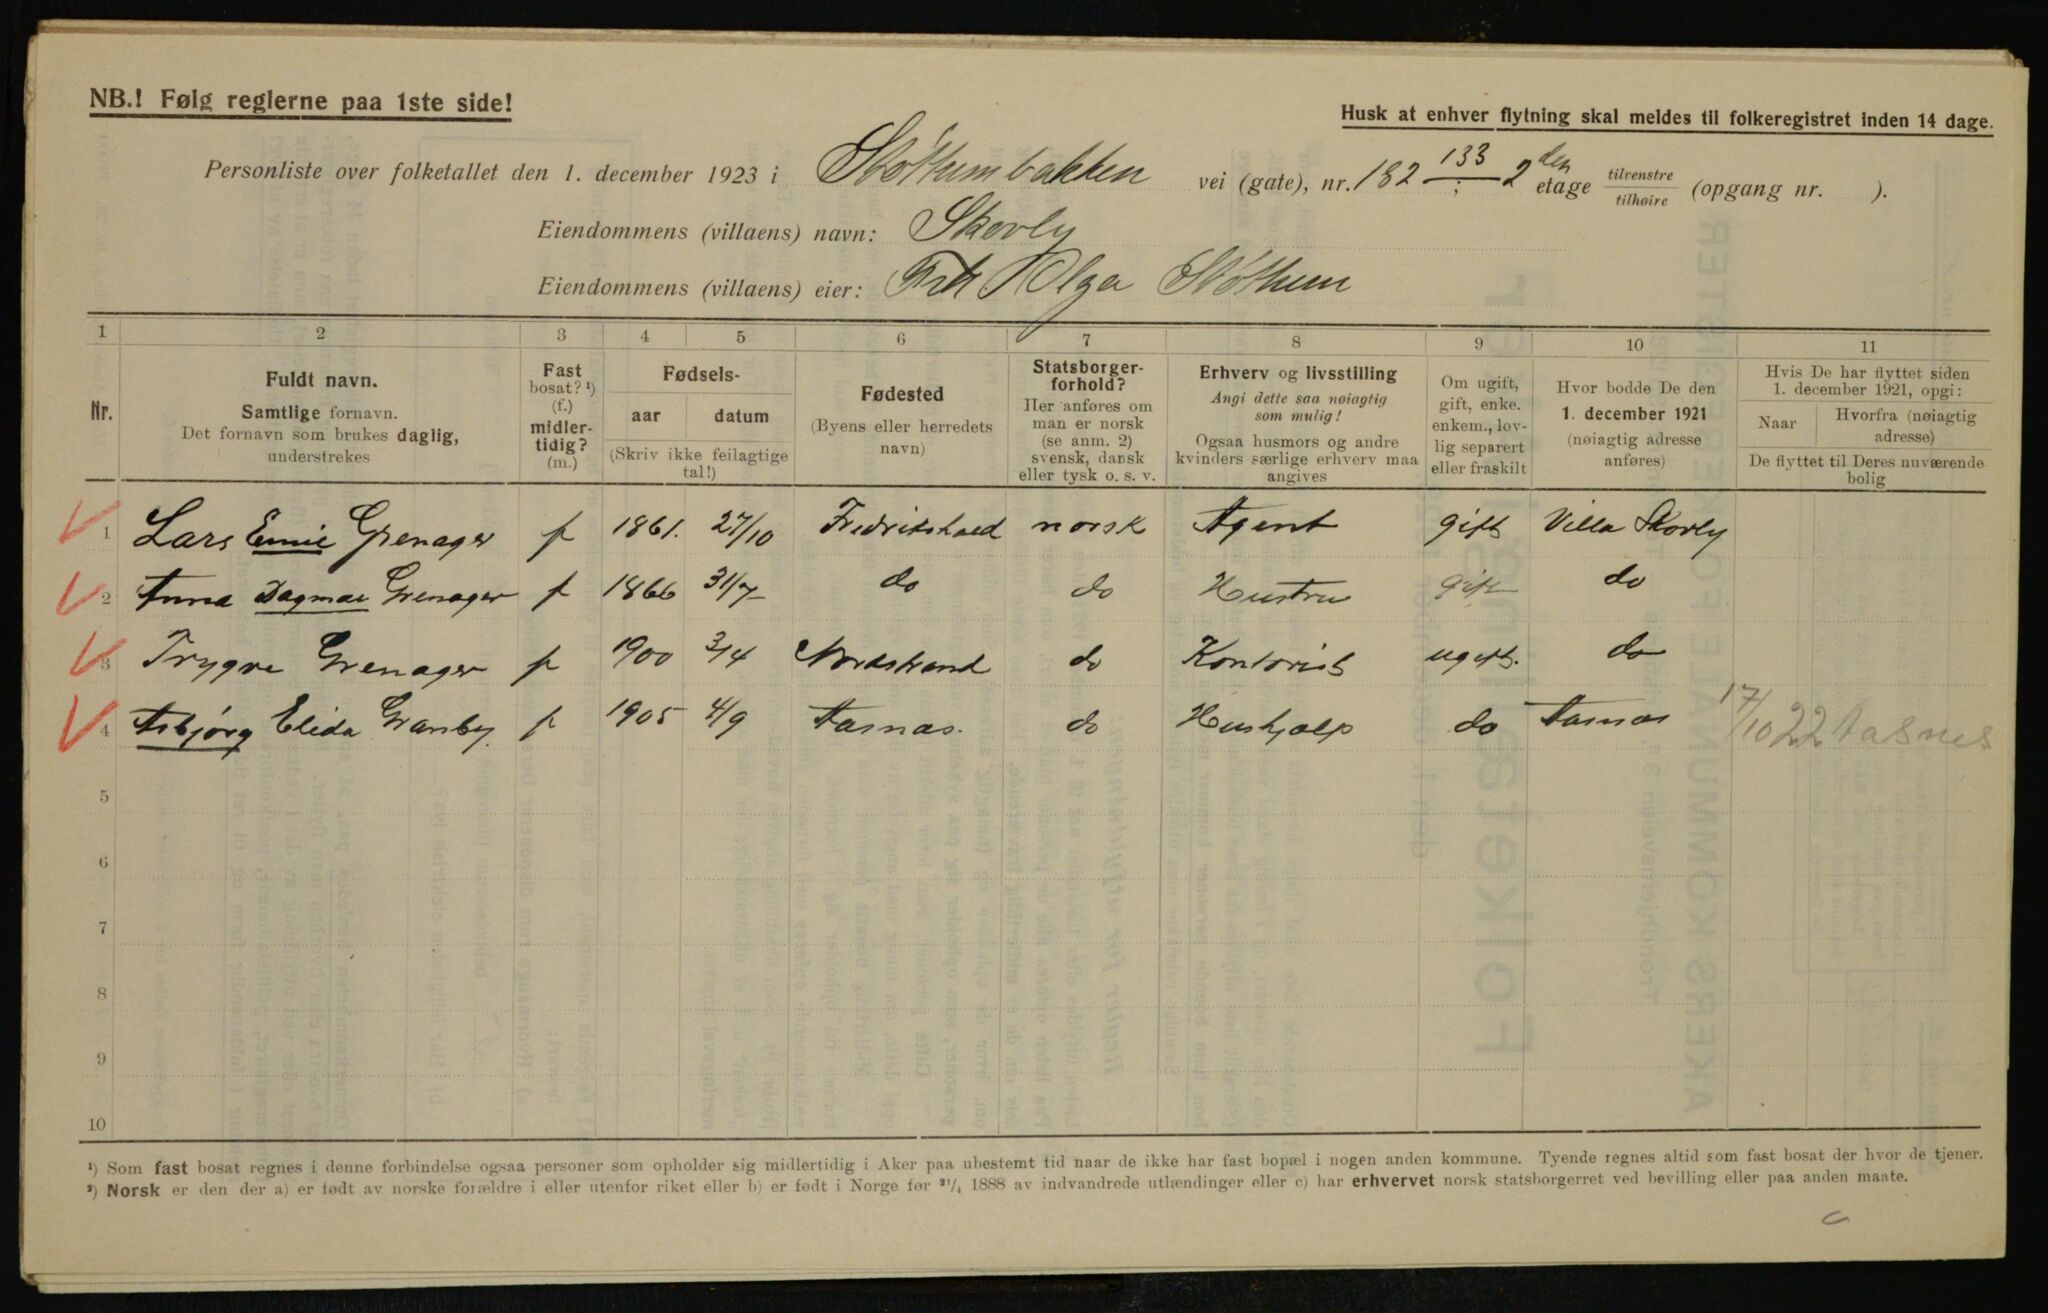 NB.! Følg reglerne paa 1ste side!
Husk at enhver flytning skal meldes til folkeregistret inden 14 dage.
Personliste over folketallet den 1. december 1923 i Støthumbakken vei (gate), nr. 182 133 ; 2 den etage tilvenstre tilhøire (opgang nr. ).
Eiendommens (villaens) navn: Skovly
Eiendommens (villaens) eier: Frk Olga Støthum
1 2 3 4 5 6 7 8 9 10 11
Nr.
Fuldt navn.
Samtlige fornavn.
Det fornavn som brukes daglig,
understrekes
Fast
bosat? ¹)
(f.)
midler-
tidig?
(m.)
Fødsels-
aar datum
(Skriv ikke feilagtige
tal!)
Fødested
(Byens eller herredets
navn)
Statsborger-
forhold?
Her anføres om
man er norsk
(se anm. 2)
svensk, dansk
eller tysk o. s. v.
Erhverv og livsstilling
Angi dette saa nøiagtig
som mulig!
Ogsaa husmors og andre
kvinders særlige erhverv maa
angives
Om ugift,
gift, enke.
enkem., lov-
lig separert
eller fraskilt
Hvor bodde De den
1. december 1921
(nøiagtig adresse
anføres)
Hvis De har flyttet siden
1. december 1921, opgi:
Naar Hvorfra (nøiagtig
adresse)
De flyttet til Deres nuværende
bolig
1 Lars Emil Grenager f 1861. 27/10 Fredrikshald norsk Agent gift Villa Skovly
2 Anna Dagmar Grenager f 1866 31/7 do do Hustru gift do
3 Trygve Grenager f 1900 3/4 Nordstrand do Kontorist ugift. do
4 Asbjørg Elida Granby f 1905 4/9 Aasnas. do Hushjælp do Aasnas 17/10 22 Aasnes
5
6
7
8
9
10
¹) Som fast bosat regnes i denne forbindelse ogsaa personer som opholder sig midlertidig i Aker paa ubestemt tid naar de ikke har fast bopæl i nogen anden kommune. Tyende regnes altid som fast bosat der hvor de tjener.
²) Norsk er den der a) er født av norske forældre i eller utenfor riket eller b) er født i Norge før ²¹/₄ 1888 av indvandrede utlændinger eller c) har erhvervet norsk statsborgerret ved bevilling eller paa anden maate.